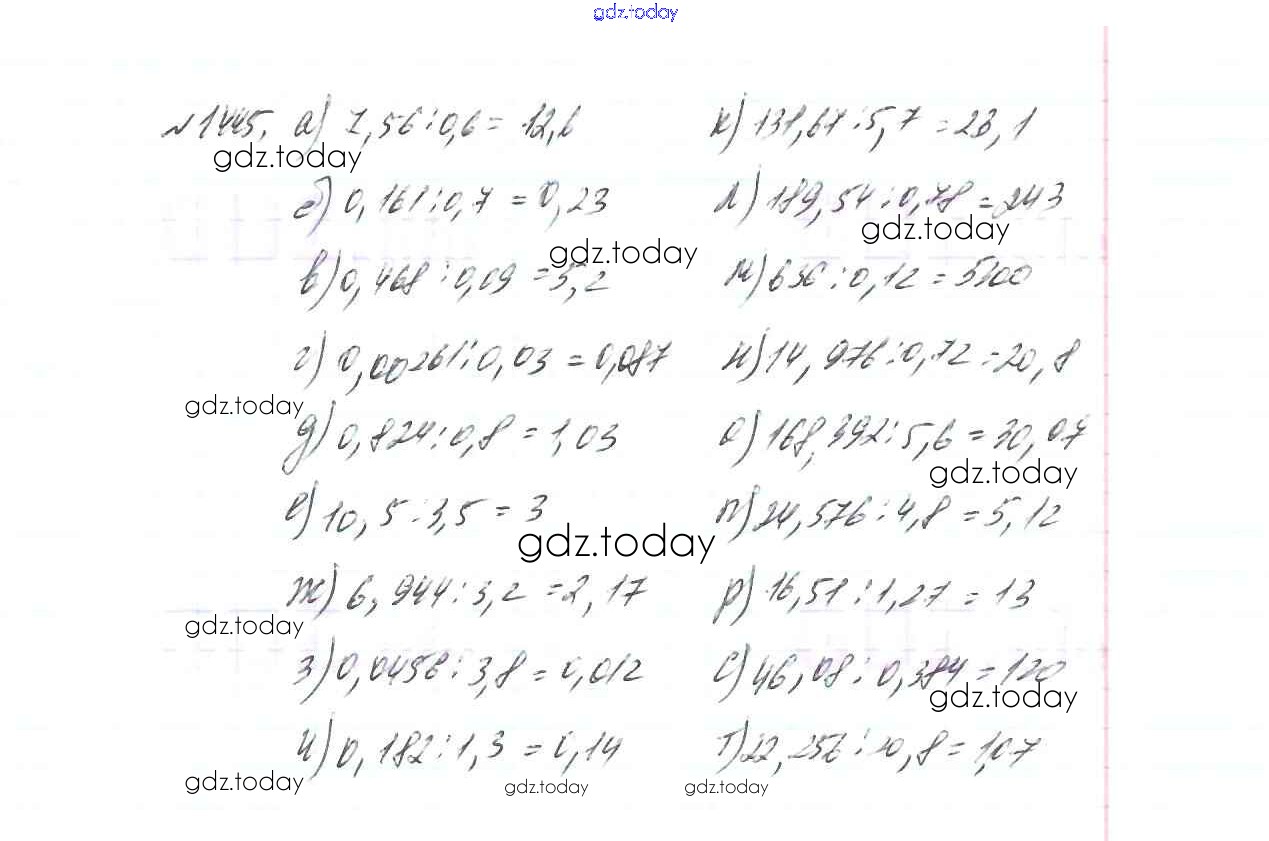 gdz.today
№1445. а) 7,56:0,6 = 12,6
gdz.today
б) 0,161:0,7 = 0,23
gdz.today
в) 0,468:0,09 = 5,2
г) 0,00261:0,03 = 0,087
gdz.today
д) 0,824:0,8 = 1,03
е) 10,5:3,5 = 3
gdz.today
ж) 6,944:3,2 = 2,17
gdz.today
з) 0,0456:3,8 = 0,012
и) 0,182:1,3 = 0,14
gdz.today
gdz.today
к) 131,67:5,7 = 23,1
л) 189,54:0,78 = 243
gdz.today
м) 636:0,12 = 5300
н) 14,976:0,72 = 20,8
о) 168,392:5,6 = 30,07
gdz.today
п) 24,576:4,8 = 5,12
р) 16,51:1,27 = 13
с) 46,08:0,384 = 120
gdz.today
т) 22,256:20,8 = 1,07
gdz.today